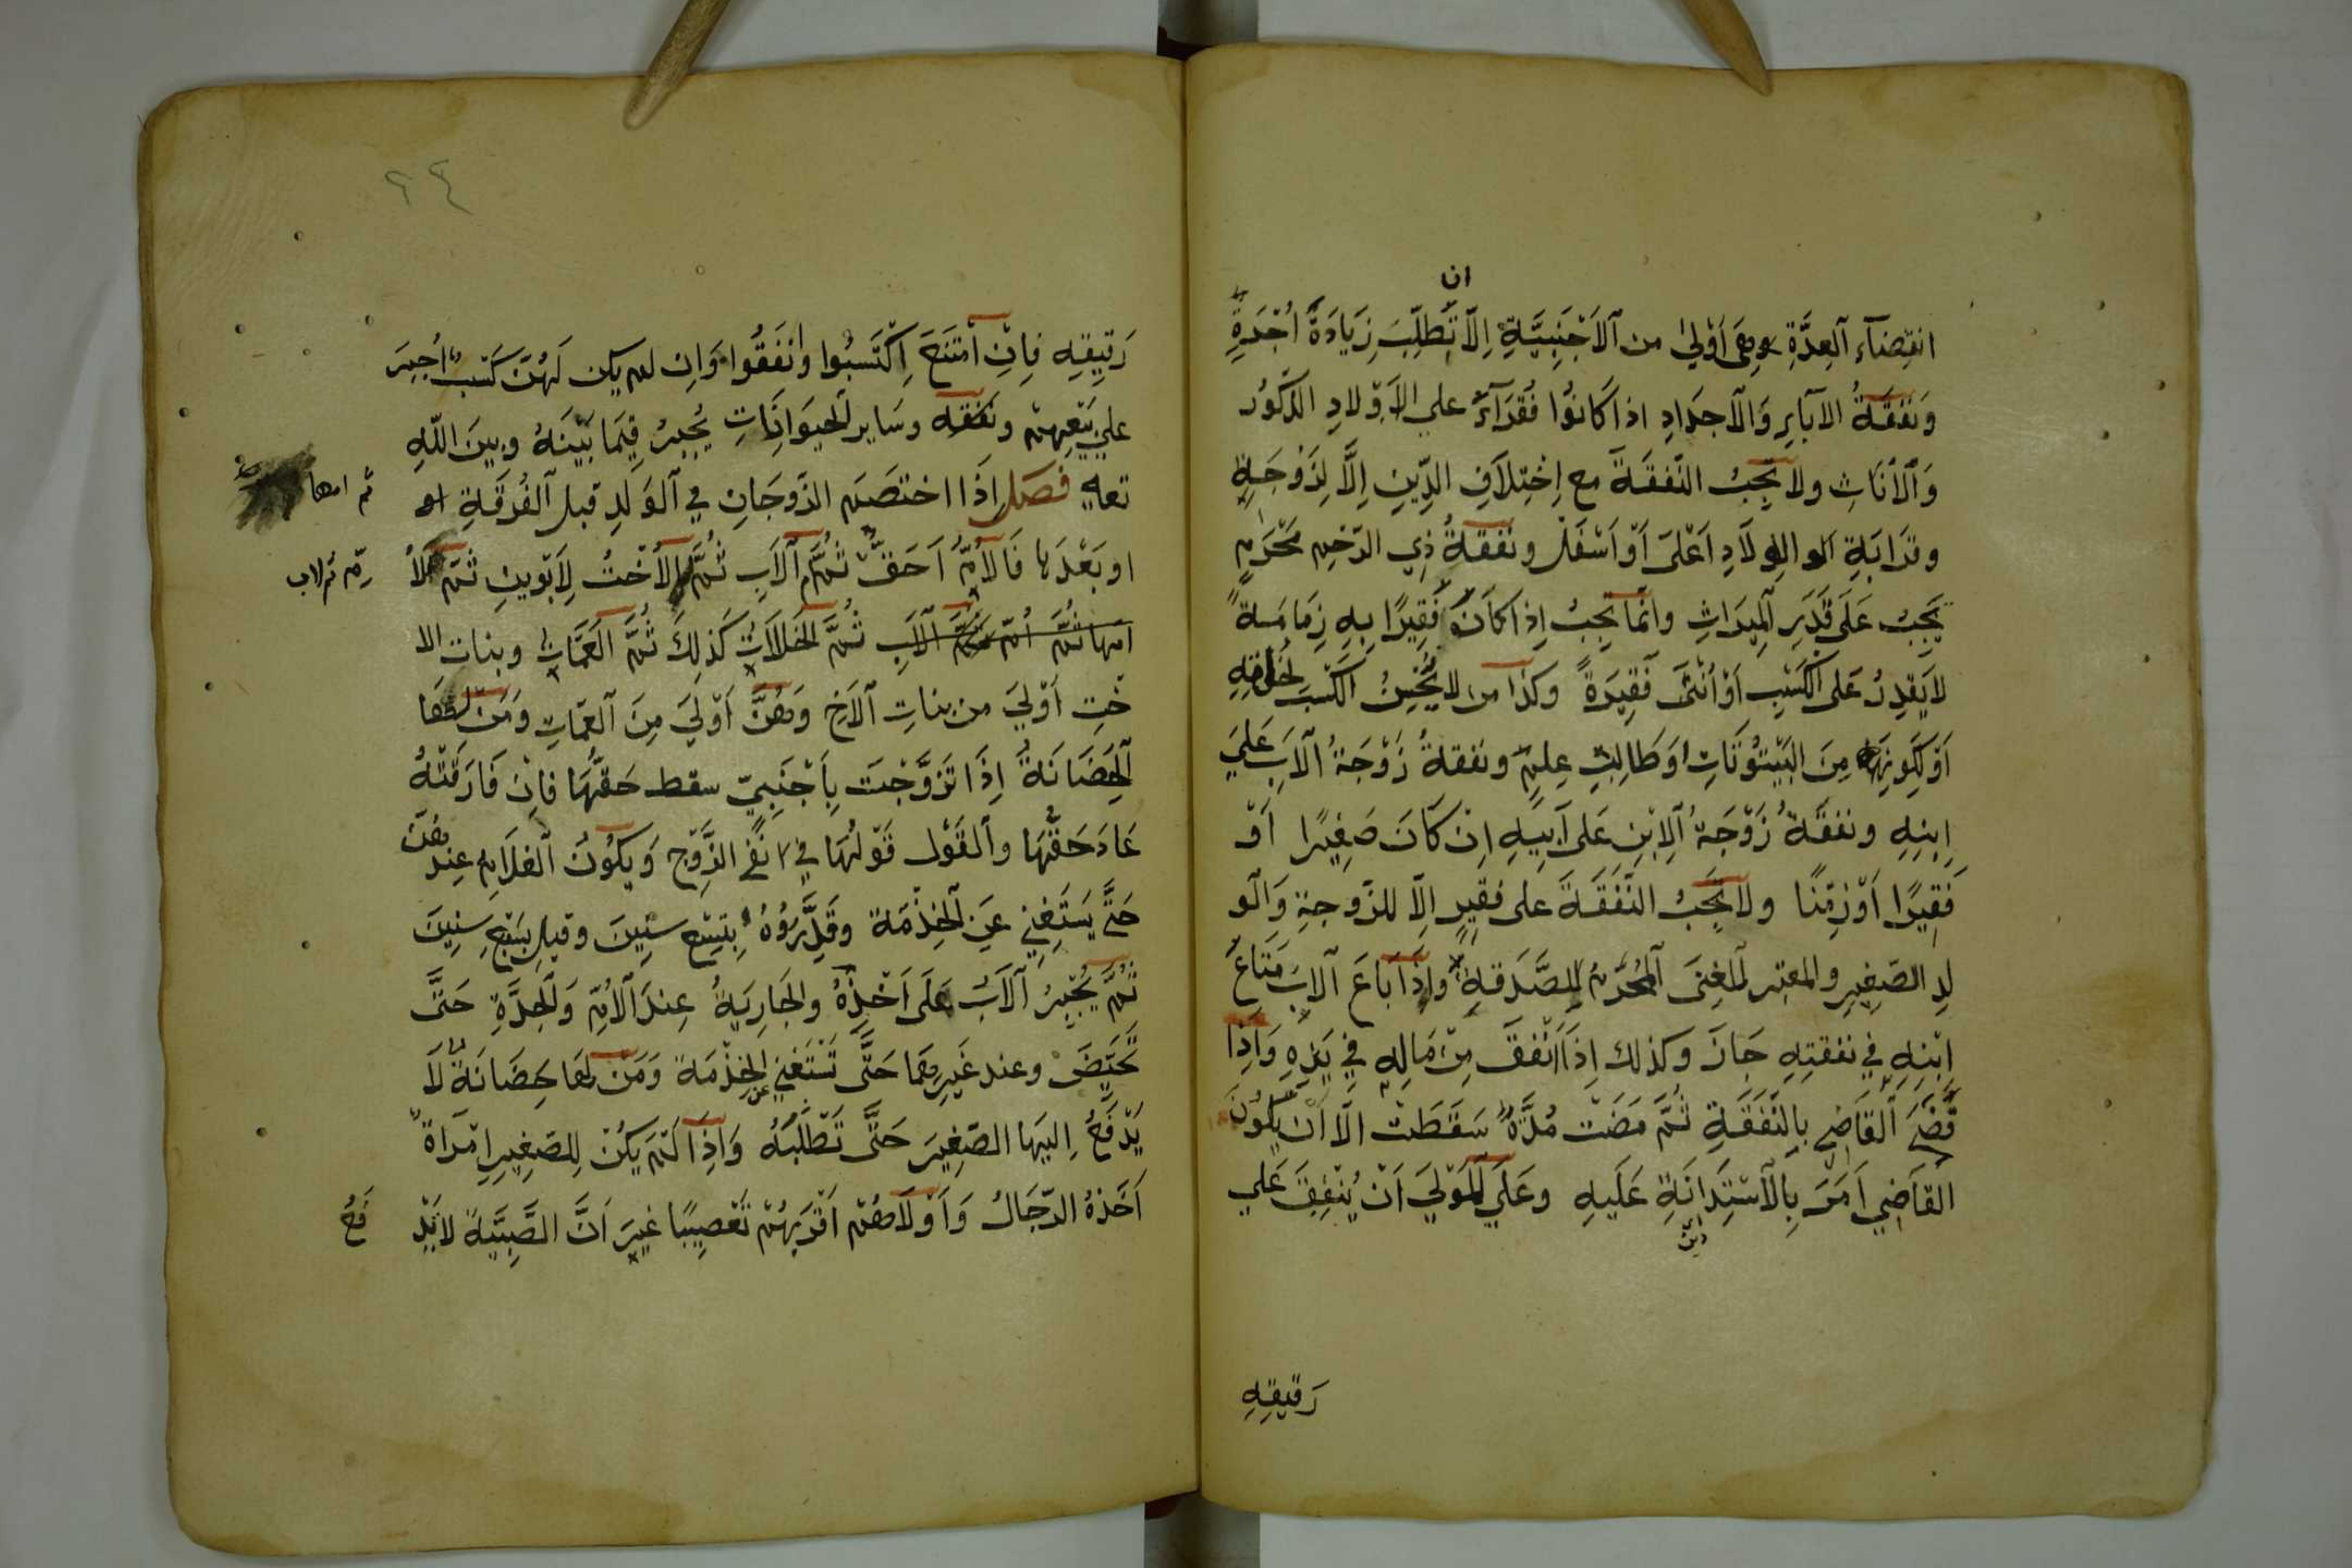 ان
انقِضآءِ العِدَّةِ وهي اَوْلي من الاَجْنَبِيَّةِ اِلاّ تَطلِبَ زِيَادَةَ اُجْرَةٍ
وَنفقَةُ الآبآءِ وَالاَجدَادِ اذا كَانوُا فُقَرَآءَ علي الاَوْلادِ الذُّكُورِ
وَالاُنَاثِ ولا تجِبُ النّفقَةَ مع اِخْتِلاَفِ الدِّينِ اِلَّا لِلزَوْجَةِ
وقرَابَةِ الولاَدِ اَعْلَى اَوْ اَسْفَلَ ونَفقةُ ذِي الرّحِمِ مَحْرَمٍ
يَجِبُ عَلَى قَدَرِ المِيرَاثِ وانّما تجِبُ اِذا كاَنَ فَقِيرًا بِهِ زِمَامَسة
لا يَقْدِرُ عَلى الكَسْبِ اَوْ اُنْثَى فَقِيرَةً وكذا من لا يُحْسِنُ الكَسْبَ لخُرْقِهِ
اَوْ لِكَونِهِ مِنَ البُيُتوُتَاتِ اوَ طَالِبِ عِلمٍ ونفقةُ زَوْجَةُ الاَبِ عَلىَ
اِبنِهِ ونفقَةُ زَوْجَةُ الاِبْنِ عَلى اَبِيهِ اِن كَانَ صَغِيرًا اَوْ
فَقِيرًا اَوْ زمِنًا ولا تجِبُ النَّفَقَةَ على فقيرٍ اِلاّ للزّوجةِ وَالوَ
لدِ الصّغِيرِ والمعتبر الغِنَى المُحَرِّمُ للصَّدَقةِ واِذَا بَاعَ الابُ مَتَاعَ
ابْنِهِ في نفقتِهِ جَازَ وكذلك اِذا اَنْفقَ مِنْ مَالِهِ في يَدِهِ وَاِذا
قَضىَ القَاضِي بِالنَّفَقَةِ ثُمَّ مَضَتْ مُدَّةً سَقَطَتْ الّا اَنْ يَكُونَ
القَاضِي اَمَرَ بِالاسْتِدَانَةِ عَلَيهِ وعَلَي المَوْلىَ اَنْ يُنْفِقَ عَلي
دَيْن
رَقيقِهِ
٢٤
رَقِيقِهِ فاِنْ امْتَنَعَ اِكْتَسَبُوا وانْفَقُوا وَان لم يكن لَهُمْ كَسْب اُجْبِرَ
علي بَيْعِهِمْ ونَفَقة وسَاير الحيوَانَاتِ يُجْبَرُ فِيَما بَيْنَهُ وبين اللّهِ
تعالي فصل اِذَا اختَصَم الزّوجَانِ في الوَلدِ قبل الفُرقَةِ
ثم امها
او بَعْدَهَا فَالاُمُّ اَحَقُّ ثُمَّ الاَبِ ثُمَّ الاُخْتُ لِاَبَوينِ ثمّ لاُ
مّ ثم لاب
امّها ثُمَّ امّ الاَبِ ثُمَّ الخَالاَتُ كَذلِكَ ثُمَّ العَمَّاتِ وبنات الا
خْتِ اَوْليَ من بناتِ الاَخِ وَهُنَّ اَوْلَيَ مِنَ العمّاتِ وَمَنْ لهَا
الحِضَانَةُ اِذَا تَزَوَّجَت بِاَجْنَبِيّ سقط حَقُّهَا فاِنْ فَارَقَتْهُ
عَادَ حَقُّهَا والقَوْل قَوْلُهَا في نفي الزَّوْج وَيكوُنُ الغلاَمِ عِندهُنَّ
حَتَّى يَسْتَغِنِي عَنِ الخِذْمَة وقَدَّرُوُهُ بِتِسْع سنِينَ وقيل بسَبْعِ سِنِينَ
ثُمَّ يُجْبَرُ الاَبُ عَلَى اَخْذِهُ والجَارِيَةُ عِندَ الاُمِّ وَالجِدَّةِ حَتَّى
تَحَيضَ وعند غَيرِهَما حَتَّى تَسْتَغنِي عن الخِذْمَة وَمَنْ لها حِضَانَةُ لَا
يَدْفَعُ اِليهَا الصّغِيرَ حَتَّى تَطْلَبَهُ وَاذا لَمْ يكُنْ لِلصّغِيرِ اِمْرَاةً
اَخَذهُ الرّجَالُ وَاَوْلاَهُمْ اَقْرَبَهُمْ تَعْصِيبًا غيرَ اَنَّ الصَّبِيَّةَ لا يَدْ
فَعُ